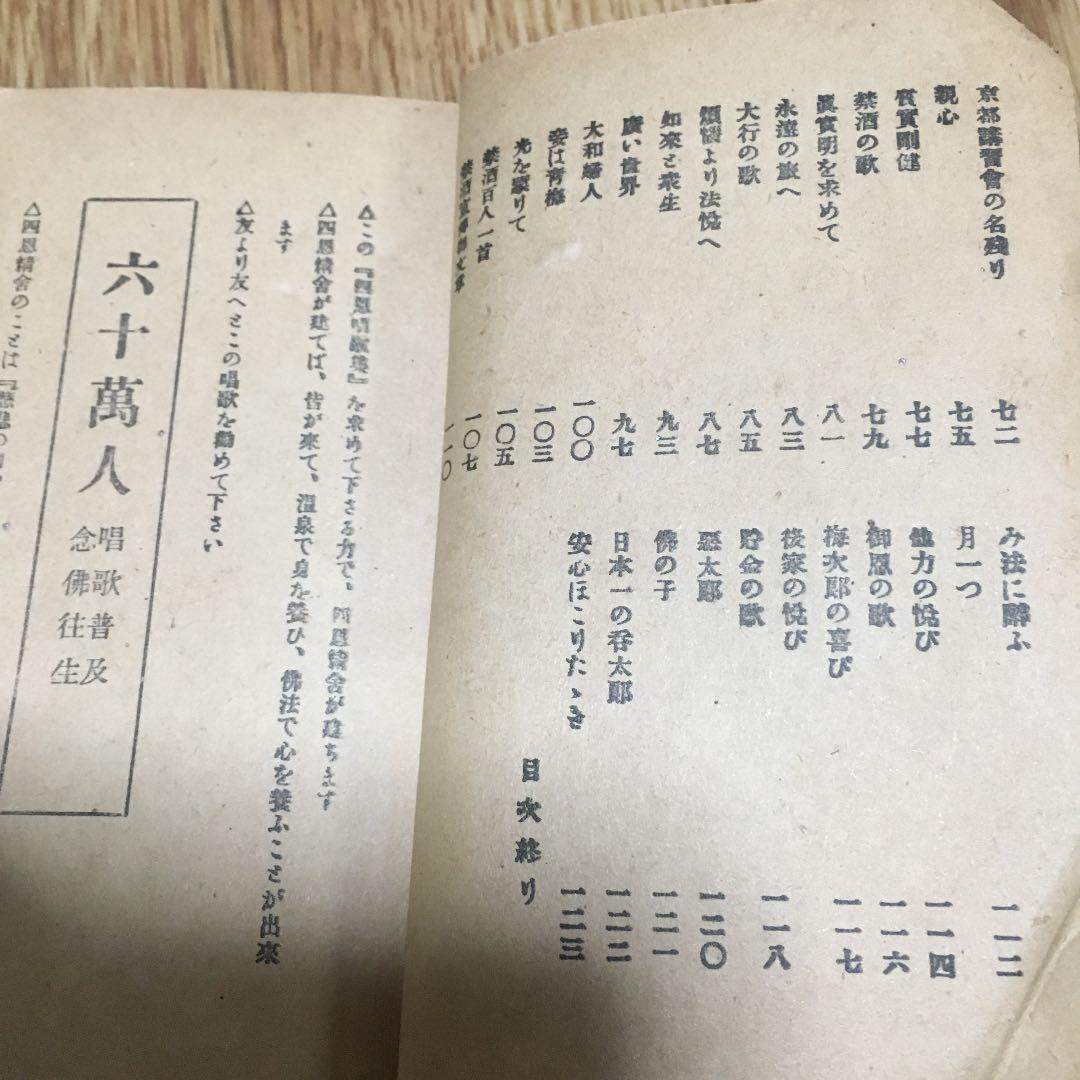 京都講習會の名殘り 七二
親心 七五
質實剛健 七七
禁酒の歌 七九
眞實明を求めて 八一
永遠の旅へ 八三
大行の歌 八五
煩惱より法悅へ 八七
如來と衆生 九三
廣い世界 九七
大和婦人 一〇〇
姿は靑梅 一〇三
光を蒙りて 一〇五
禁酒百人一首 一〇七
禁酒宣 一一〇
み法に醉ふ 一一二
月一つ 一一四
他力の悅び 一一六
御恩の歌 一一七
梅次郞の喜び
後家の悅び 一一八
貯金の歌
惡太郞 一二〇
佛の子 一二一
日本一の呑太郞 一二二
安心ほこりたゝき 一二三
目次終り
△この『四恩唱歌集』を求めて下さる方で、四恩精舍が建ちます
△四恩精舍が建てば、皆が來て、溫泉で身を養ひ、佛法で心を養ふことが出來
ます
△友より友へとこの唱歌を勸めて下さい
六十萬人
唱歌普及
念佛往生
△四恩精舍のことは『